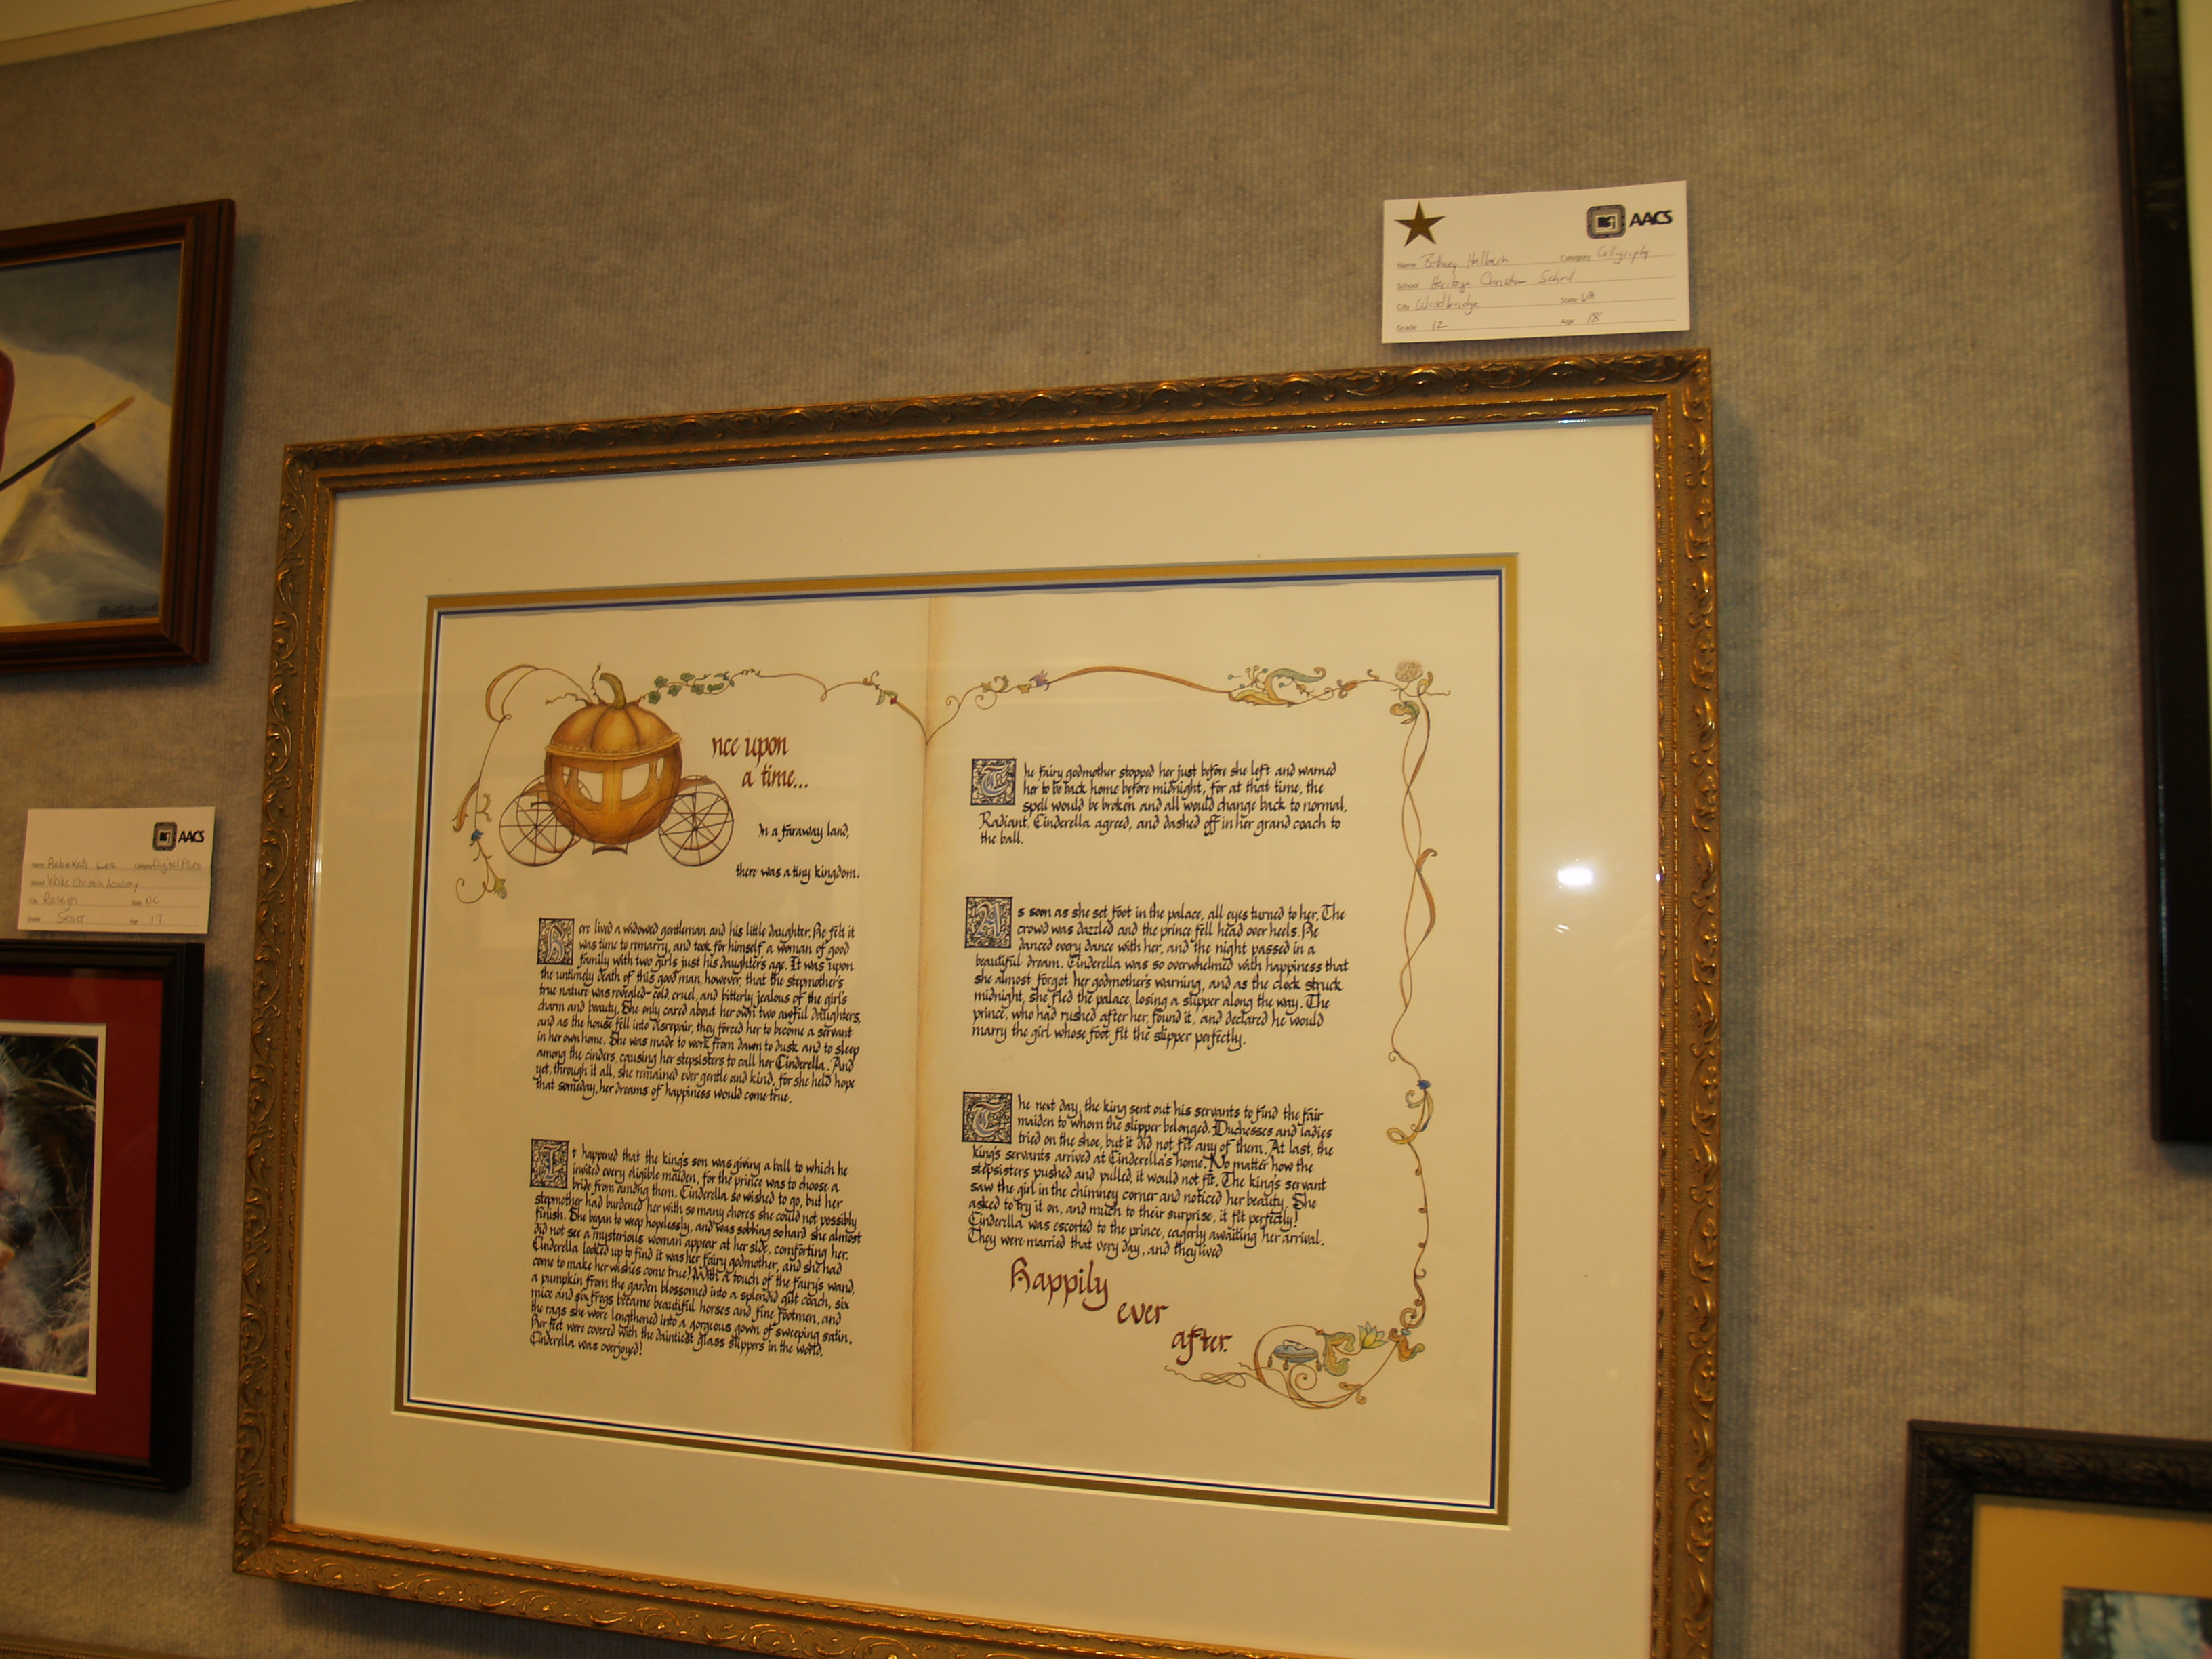 AACS
Name Category Calligraphy
School Heritage Christian School
City Woodbridge State VA
Grade 12 Age 18
AACS
Name Rebekah Lea Category Digital Photo
School Wake Christian Academy
City Raleigh State NC
Grade Age 17
nce upon
a time...
In a faraway land,
there was a tiny kingdom.
Here lived a widowed gentleman and his little daughter. He felt it
was time to remarry, and took for himself a woman of good
family with two girls just his daughter's age. It was upon
the untimely death of this good man, however, that the stepmother's
true nature was revealed-cold, cruel, and bitterly jealous of the girl's
charm and beauty. She only cared about her own two awful daughters,
and as the house fell into disrepair, they forced her to become a servant
in her own home. She was made to work from dawn to dusk and to sleep
among the cinders, causing her stepsisters to call her Cinderella. And
yet, through it all, she remained ever gentle and kind, for she held hope
that someday, her dreams of happiness would come true.
It happened that the king's son was giving a ball to which he
invited every eligible maiden, for the prince was to choose a
bride from among them. Cinderella so wished to go, but her
stepmother had burdened her with so many chores she could not possibly
finish. She began to weep hopelessly, and was sobbing so hard she almost
did not see a mysterious woman appear at her side, comforting her.
Cinderella looked up to find it was her fairy godmother, and she had
come to make her wishes come true! With a touch of the fairy's wand,
a pumpkin from the garden blossomed into a splendid gilt coach, six
mice and six frogs became beautiful horses and fine footmen, and
the rags she wore lengthened into a gorgeous gown of sweeping satin.
Her feet were covered with the daintiest glass slippers in the world.
Cinderella was overjoyed!
The fairy godmother stopped her just before she left and warned
her to be back home before midnight, for at that time, the
spell would be broken and all would change back to normal.
Radiant, Cinderella agreed, and dashed off in her grand coach to
the ball.
As soon as she set foot in the palace, all eyes turned to her. The
crowd was dazzled and the prince fell head over heels. He
danced every dance with her, and the night passed in a
beautiful dream. Cinderella was so overwhelmed with happiness that
she almost forgot her godmother's warning, and as the clock struck
midnight, she fled the palace, losing a slipper along the way. The
prince, who had rushed after her, found it, and declared he would
marry the girl whose foot fit the slipper perfectly.
The next day, the king sent out his servants to find the fair
maiden to whom the slipper belonged. Duchesses and ladies
tried on the shoe, but it did not fit any of them. At last, the
king's servants arrived at Cinderella's home. No matter how the
stepsisters pushed and pulled, it would not fit. The king's servant
saw the girl in the chimney corner and noticed her beauty. She
asked to try it on, and much to their surprise, it fit perfectly!
Cinderella was escorted to the prince, eagerly awaiting her arrival.
They were married that very day, and they lived
Happily
ever
after.